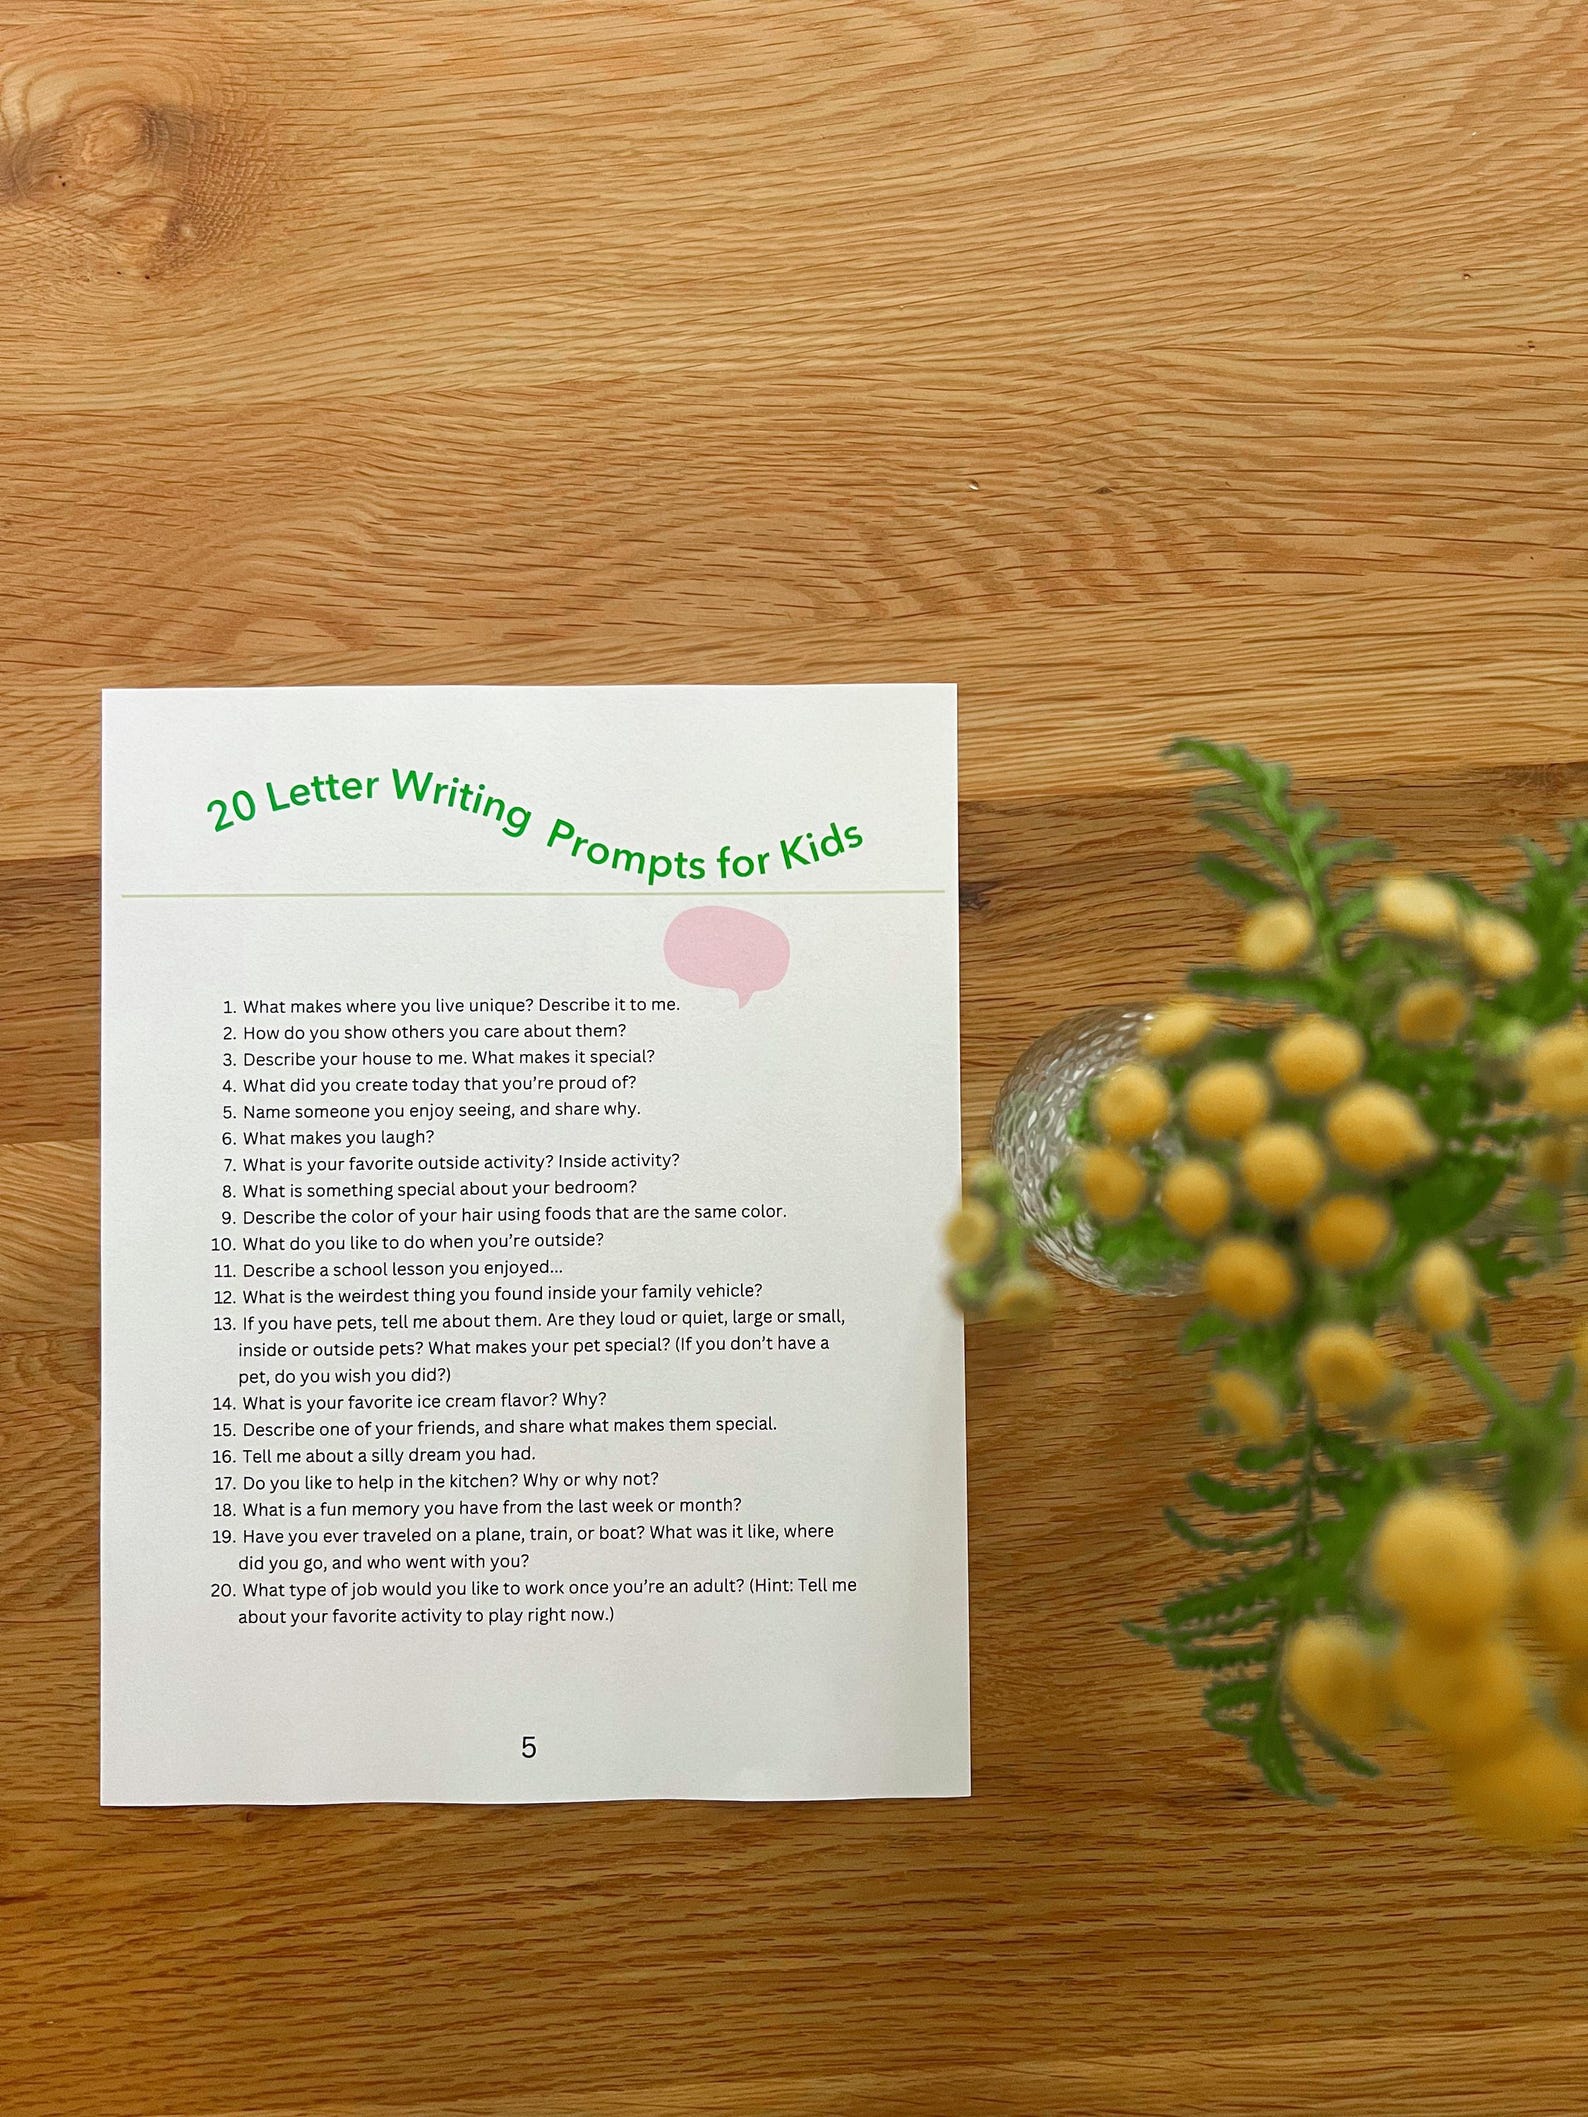 20 Letter Writing Prompts for Kids
1. What makes where you live unique? Describe it to me.
2. How do you show others you care about them?
3. Describe your house to me. What makes it special?
4. What did you create today that you're proud of?
5. Name someone you enjoy seeing, and share why.
6. What makes you laugh?
7. What is your favorite outside activity? Inside activity?
8. What is something special about your bedroom?
9. Describe the color of your hair using foods that are the same color.
10. What do you like to do when you're outside?
11. Describe a school lesson you enjoyed...
12. What is the weirdest thing you found inside your family vehicle?
13. If you have pets, tell me about them. Are they loud or quiet, large or small,
inside or outside pets? What makes your pet special? (If you don't have a
pet, do you wish you did?)
14. What is your favorite ice cream flavor? Why?
15. Describe one of your friends, and share what makes them special.
16. Tell me about a silly dream you had.
17. Do you like to help in the kitchen? Why or why not?
18. What is a fun memory you have from the last week or month?
19. Have you ever traveled on a plane, train, or boat? What was it like, where
did you go, and who went with you?
20. What type of job would you like to work once you're an adult? (Hint: Tell me
about your favorite activity to play right now.)
5